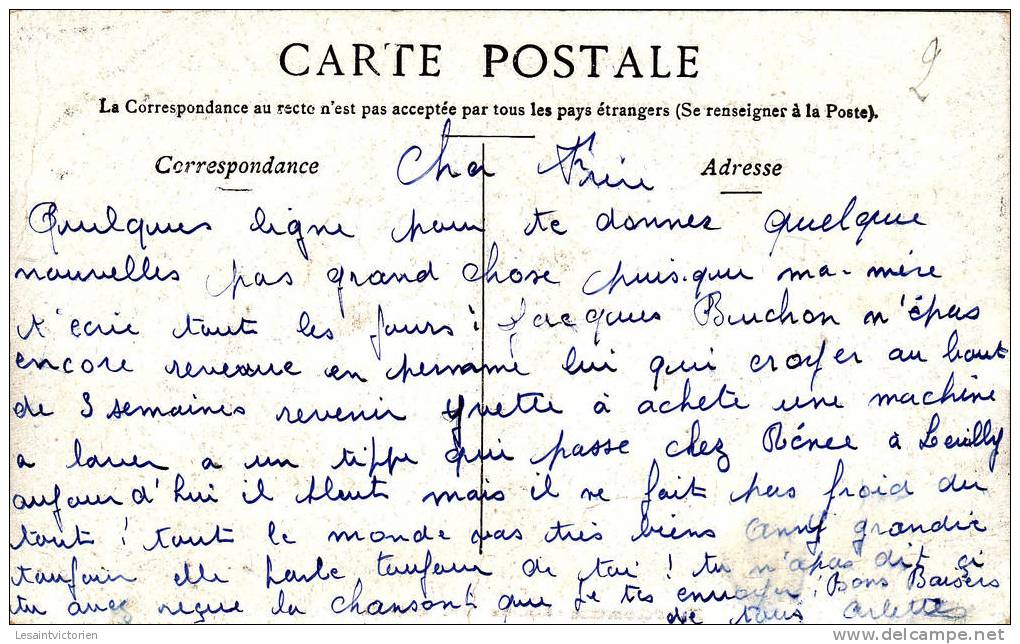 2
CARTE POSTALE
La Correspondance au recto n'est pas acceptée par tous les pays étrangers (Se renseigner à la Poste).
Correspondance
Adresse
Cher Frère
Quelques ligne pour te donner quelque
nouvelles pas grand chose puis que ma mère
t'écrie tout les jours ! Jacques Buchon n'épas
encore revenue en permme lui qui croyer au bout
de 3 semaines revenir Yvette à acheté une machine
a laver a un tippe qui passe chez Rénee à Leuilly
aujourd'hui il pleut mais il ne fait pas froid du
tout ! tout le monde vas très biens Anny grandie
toujour elle parle toujour de toi ! tu n'apas dit si
tu avez reçue la chanson que je tes envoyer ! Bons Baisers
de tous Arlette
Lesaintvictorien
www.delcampe.net